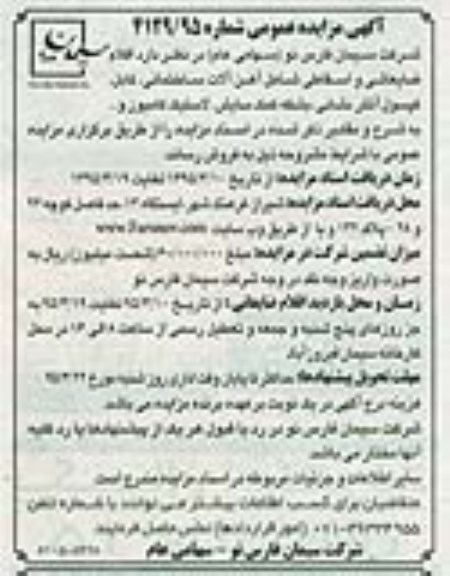 آگهی مزایده عمومی شماره ۴۱۳۹/۹۵
شرکت سیمان فارس نو (سهامی عام) در نظر دارد اقلام
ضایعاتی و اسقاطی شامل آهن آلات ساختمانی، کابل،
کپسول آتش نشانی، لاستیک کامیون و ..
به شرح و مقادیر ذکر شده در اسناد مزایده را از طریق برگزاری مزایده
عمومی با شرایط مشروحه ذیل به فروش رساند.
زمان دریافت اسناد مزایده: از تاریخ ۱۳۹۵/۳/۱۰ لغایت ۱۳۹۵/۳/۱۹
محل دریافت اسناد مزایده: شیراز فرهنگ شهر، ایستگاه ۱۳ حد فاصل کوچه ۲۶
و ۲۸ - پلاک ۱۳۲ و یا از طریق وب سایت
میزان تضمین شرکت در مزایده: مبلغ ۶۰/۰۰۰/۰۰۰ (شصت میلیون) ریال به
صورت واریز وجه نقد در وجه شرکت سیمان فارس نو
زمان و محل بازدید اقلام ضایعاتی: از تاریخ ۹۵/۳/۱۰ لغایت ۹۵/۳/۱۹ به
جز روزهای پنج شنبه و جمعه و تعطیل رسمی از ساعت ۸ الی ۱۳ در محل
کارخانه سیمان فیروزآباد
مهلت تحویل پیشنهادها: حداکثر تا پایان وقت اداری روز شنبه مورخ ۹۵/۳/۲۲
هزینه درج آگهی در یک نوبت بر عهده برنده مزایده می باشد.
شرکت سیمان فارس نو در رد یا قبول هر یک از پیشنهادها یا رد کلیه
آنها مختار می باشد.
سایر اطلاعات و جزئیات مربوطه در اسناد مزایده مندرج است.
متقاضیان برای کسب اطلاعات بیشتر می توانند با شماره تلفن
(امور قراردادها) تماس حاصل فرمایند.
شرکت سیمان فارس نو - سهامی عام